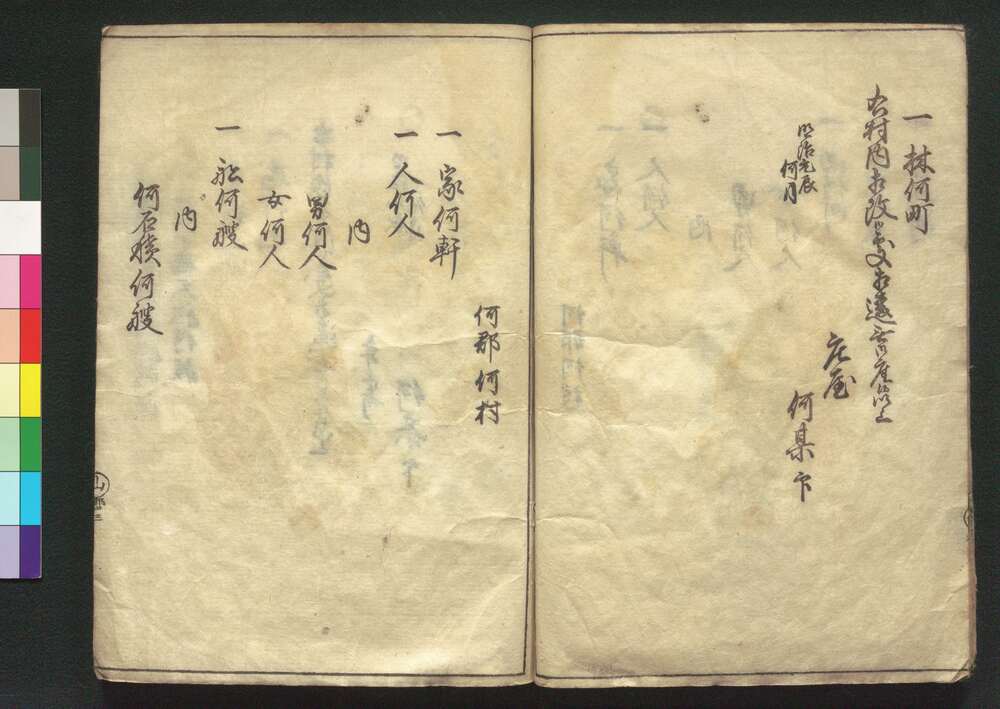 一 林何町
右村内相改候処相違無御座候以上
明治元辰
何月
庄屋
何某 印
何郡何村
一 家何軒
一 人何人
内
男何人
女何人
一 船何艘
内
何石積何艘
山